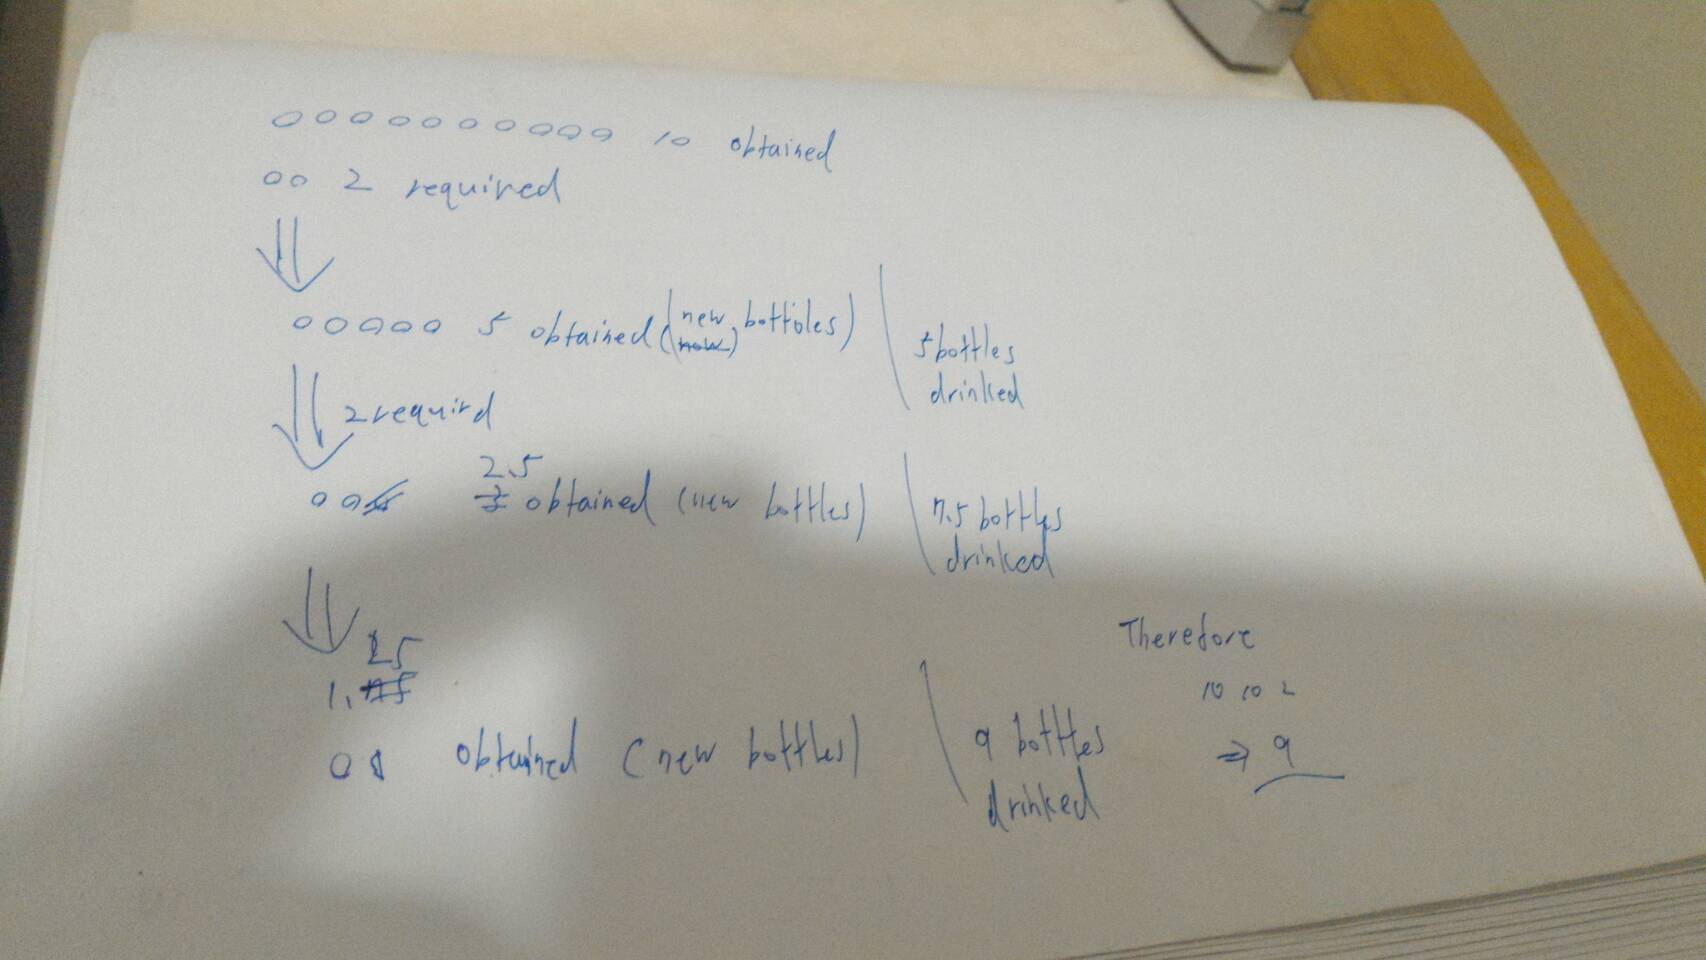 10 obtained
2 required
5 obtained (new bottoles)
5 bottles
drinked
2 requird
2.5
obtained (new bottles)
7.5 bottles
drinked
25
1.
obtained (new bottles)
9 bottles
drinked
Therefore
10 10 2
⇒ 9